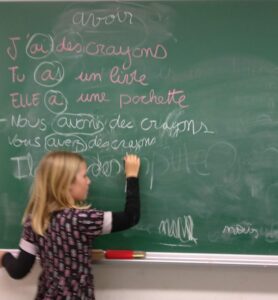 avoir
J'ai des crayons
Tu as un livre
ELLE a une pochette
Nous avons des crayons
vous avez des crayons
Il
nous